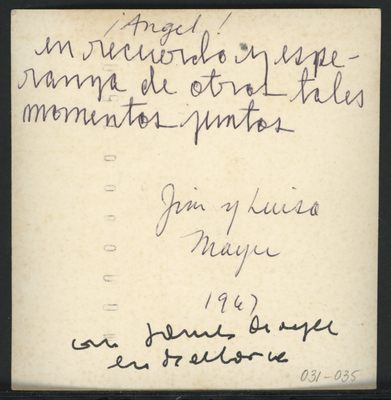 ¡Angel!
en recuerdo y espe-
ranza de otros tales
momentos juntos
Jim y Luisa
Mayer
1967
con James Mayer
en Mallorca
031-035